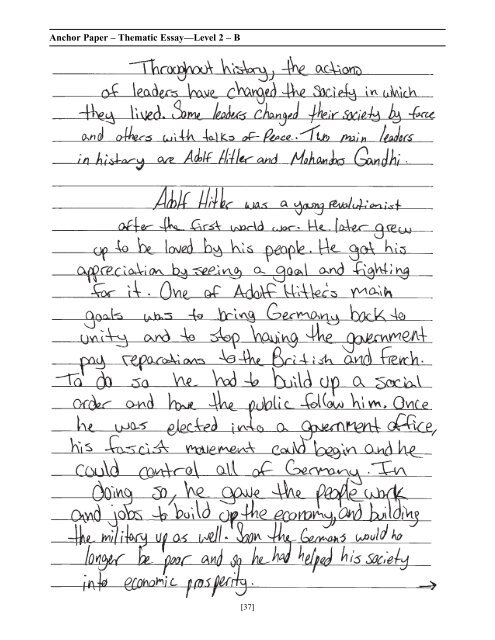 Anchor Paper – Thematic Essay—Level 2 – B
Throughout history, the actions
of leaders have changed the society in which
they lived. Some leaders changed their society by force
and others with talks of Peace. Two main leaders
in history are Adolf Hitler and Mohandas Gandhi.
Adolf Hitler was a young revolutionist
after the first world war. He later grew
up to be loved by his people. He got his
appreciation by seeing a goal and fighting
for it. One of Adolf Hitler's main
goals was to bring Germany back to
unity and to stop having the government
pay reparations to the British and french.
To do so he had to build up a social
order and have the public follow him. Once
he was elected into a government office,
his fascist movement could begin and he
could control all of Germany. In
doing so, he gave the people work
and jobs to build up the economy, and building
the military up as well. Soon the Germans would no
longer be poor and so he had helped his society
into economic prosperity. →
[37]